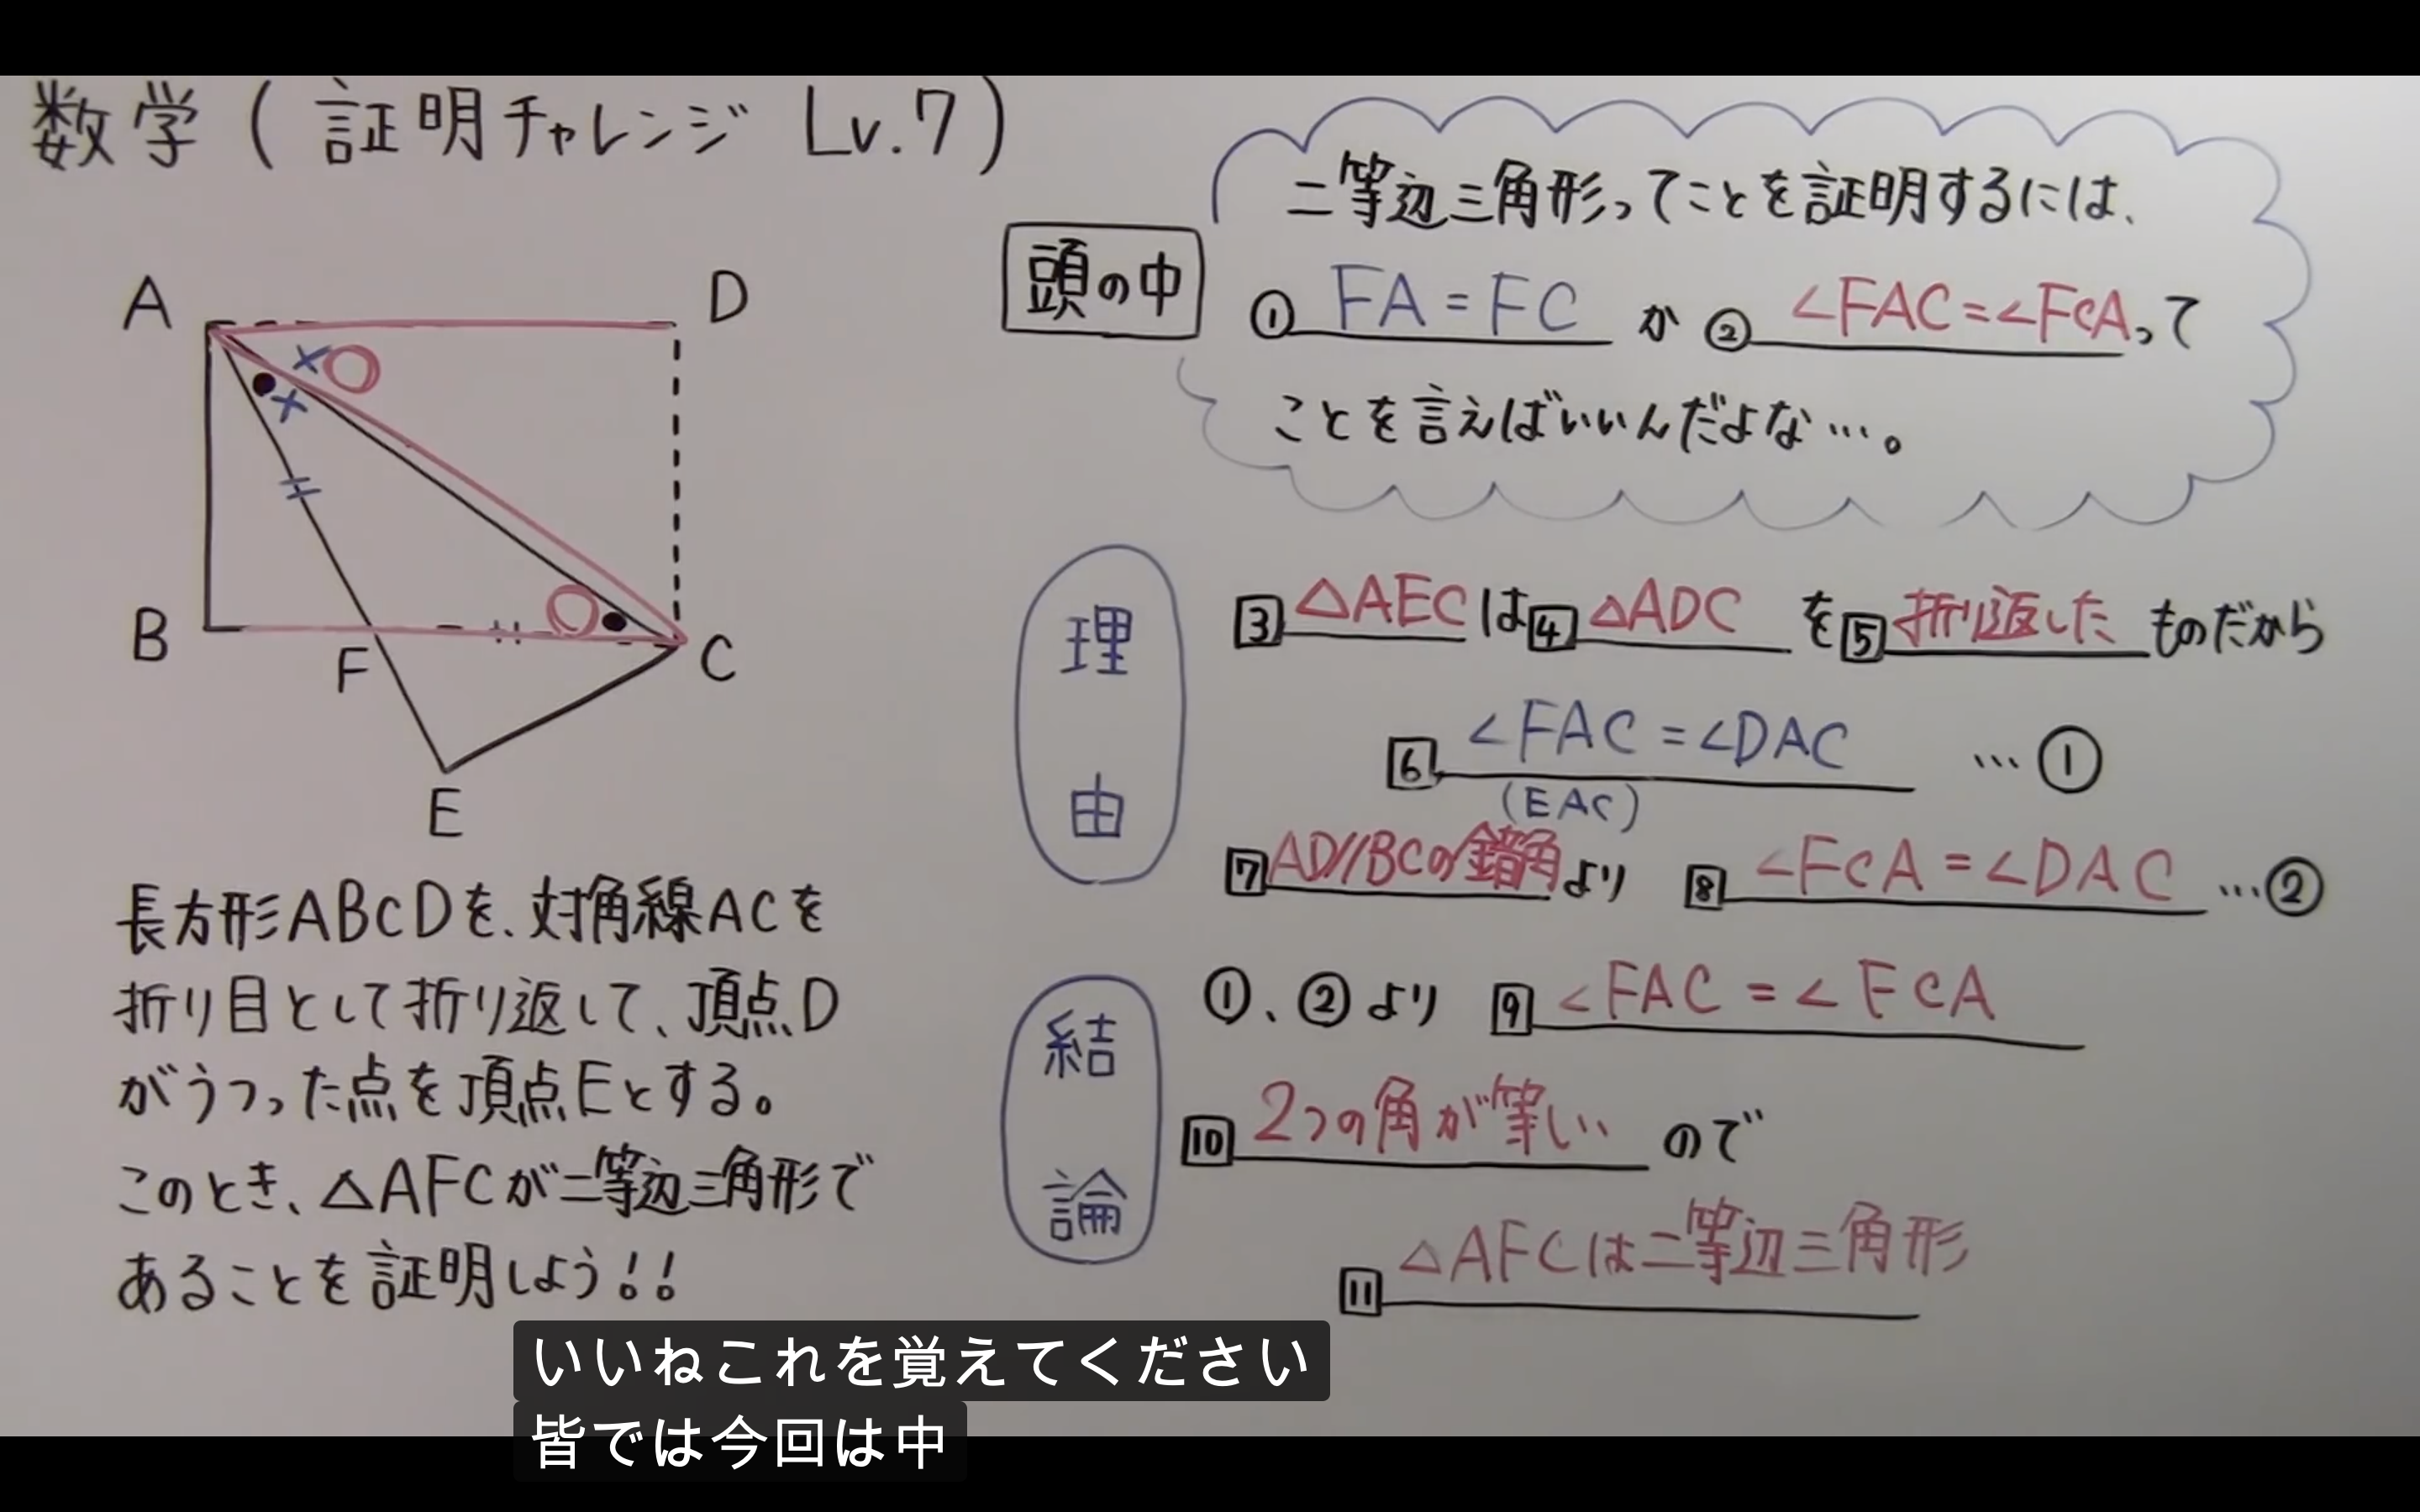 数学(証明チャレンジ Lv.7)
A
D
B
F
C
E
長方形ABCDを、対角線ACを
折り目として折り返して、頂点D
がうつった点を頂点Eとする。
このとき、△AFCが二等辺三角形で
あることを証明しよう!!
頭の中
二等辺三角形ってことを証明するには、
① FA=FC か ② ∠FAC=∠FCAって
ことを言えばいいんだよな…。
理由
3 △AECは 4 △ADC を 5 折り返した ものだから
6 ∠FAC=∠DAC …①
(EAC)
7 AD//BCの錯角より 8 ∠FCA=∠DAC …②
結論
①、②より 9 ∠FAC=∠FCA
10 2つの角が等しい ので
11 △AFCは二等辺三角形
いいねこれを覚えてください
皆では今回は中